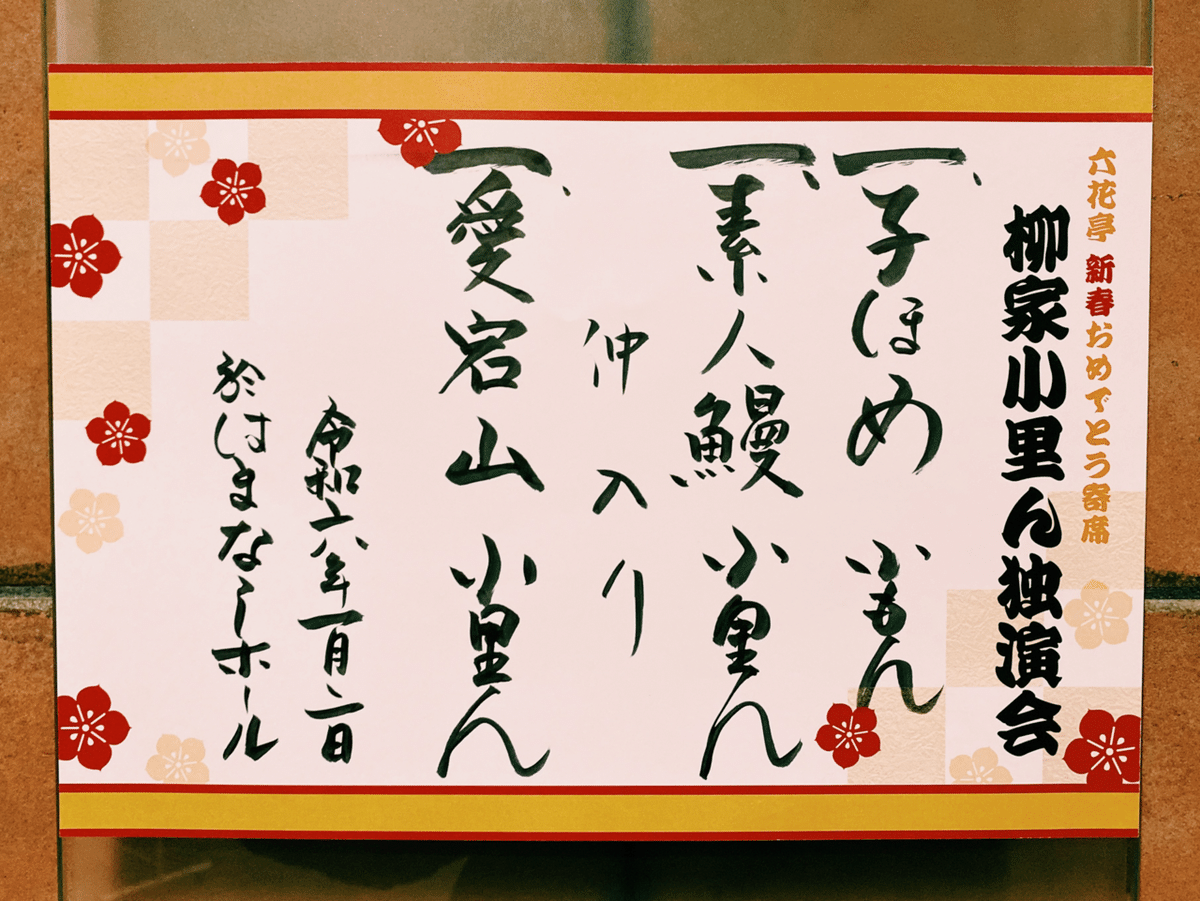 六花亭 新春おめでとう寄席
柳家小里ん独演会
一、子ほめ 小もん
一、素人鰻 小里ん
仲入り
一、愛宕山 小里ん
令和六年一月二日
於はまなしホール